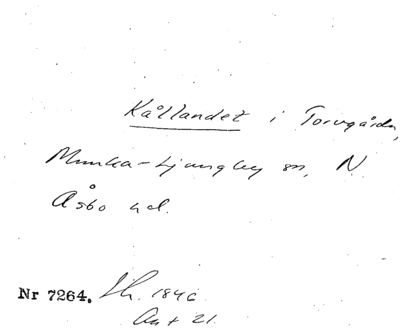 Kållandet i Torvgårda,
Munka-Ljungby sn, N.
Åsbo hd.
Nr 7264. Sk. 1846
Akt 21.